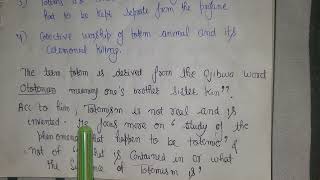 3) Totems as
had to be kept separate from the profane
4) Collective worship of totem animal and its
Ceremonial killing.
The term totem is derived from the Ojibwa word
Ototoman meaning one's brother sister kin".
Acc to him, Totemism is not real and is
invented. He focus more on "study of the
phenomena that happen to be totemic" &
not of "what is contained in or what
the Substance of Totemism is"